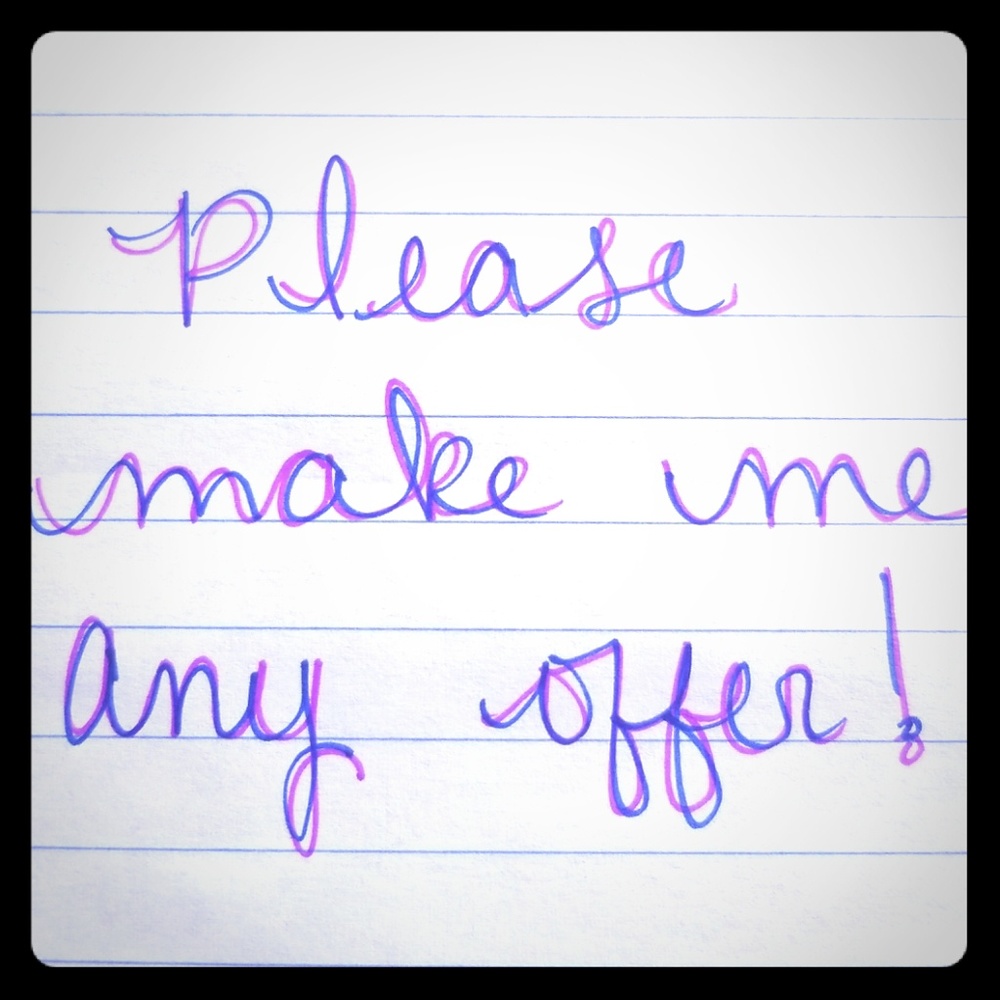 Please
make me
any offer!